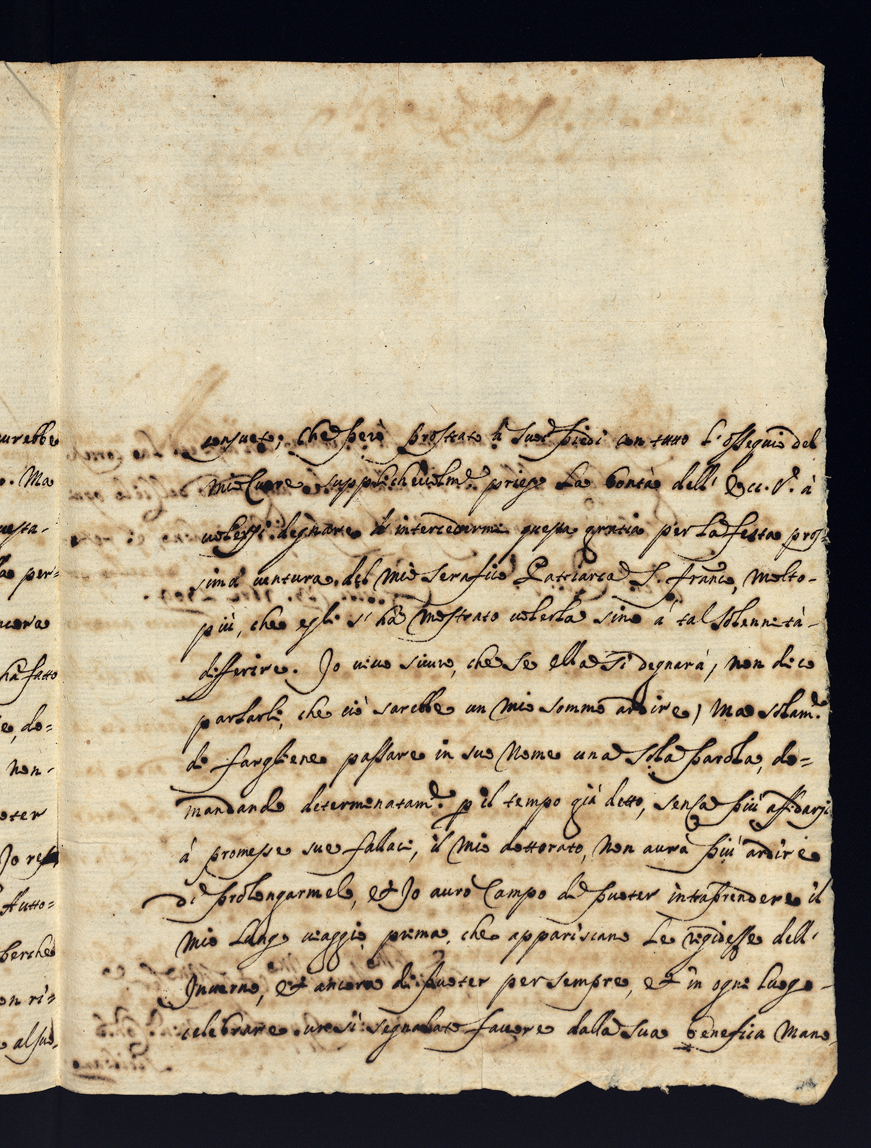 consueto; che però prostrato à suoi piedi con tutto l'ossequio del
mio Cuore supplichevolm.e priego la bontà dell' Ecc. V. à
volersi degnare d' intercedermi questa gratia per la festa pros-
sima ventura del mio Serafico Patriarca S. Franc.o, molto-
più, che egli si hà mostrato volerla sino à tal solennità-
differire. Io vivo sicuro, che se ella si degnarà, non dico
parlarli, che ciò sarebbe un mio sommo ardire, ma solam.e
di fargliene passare in suo nome una sola parola, do=
mandando determinatam.e p il tempo già detto, senza più affidarsi
à promesse sue fallaci, il mio dottorato, non aurà più ardire
di prolongarmelo, et Io aurò Campo di puoter intraprendere il
mio lungo viaggio prima, che appariscano le rigidezze dell'
Inverno, et ancora di puoter per sempre, et in ogni luogo-
celebrare un sì segnalato favore dalla sua benefica mano
urebbe
o. Ma
uesta-
per=
ncora
hà fatto
e, do=
non-
oter
Io res
Autto=
perche
on ri=
al suo